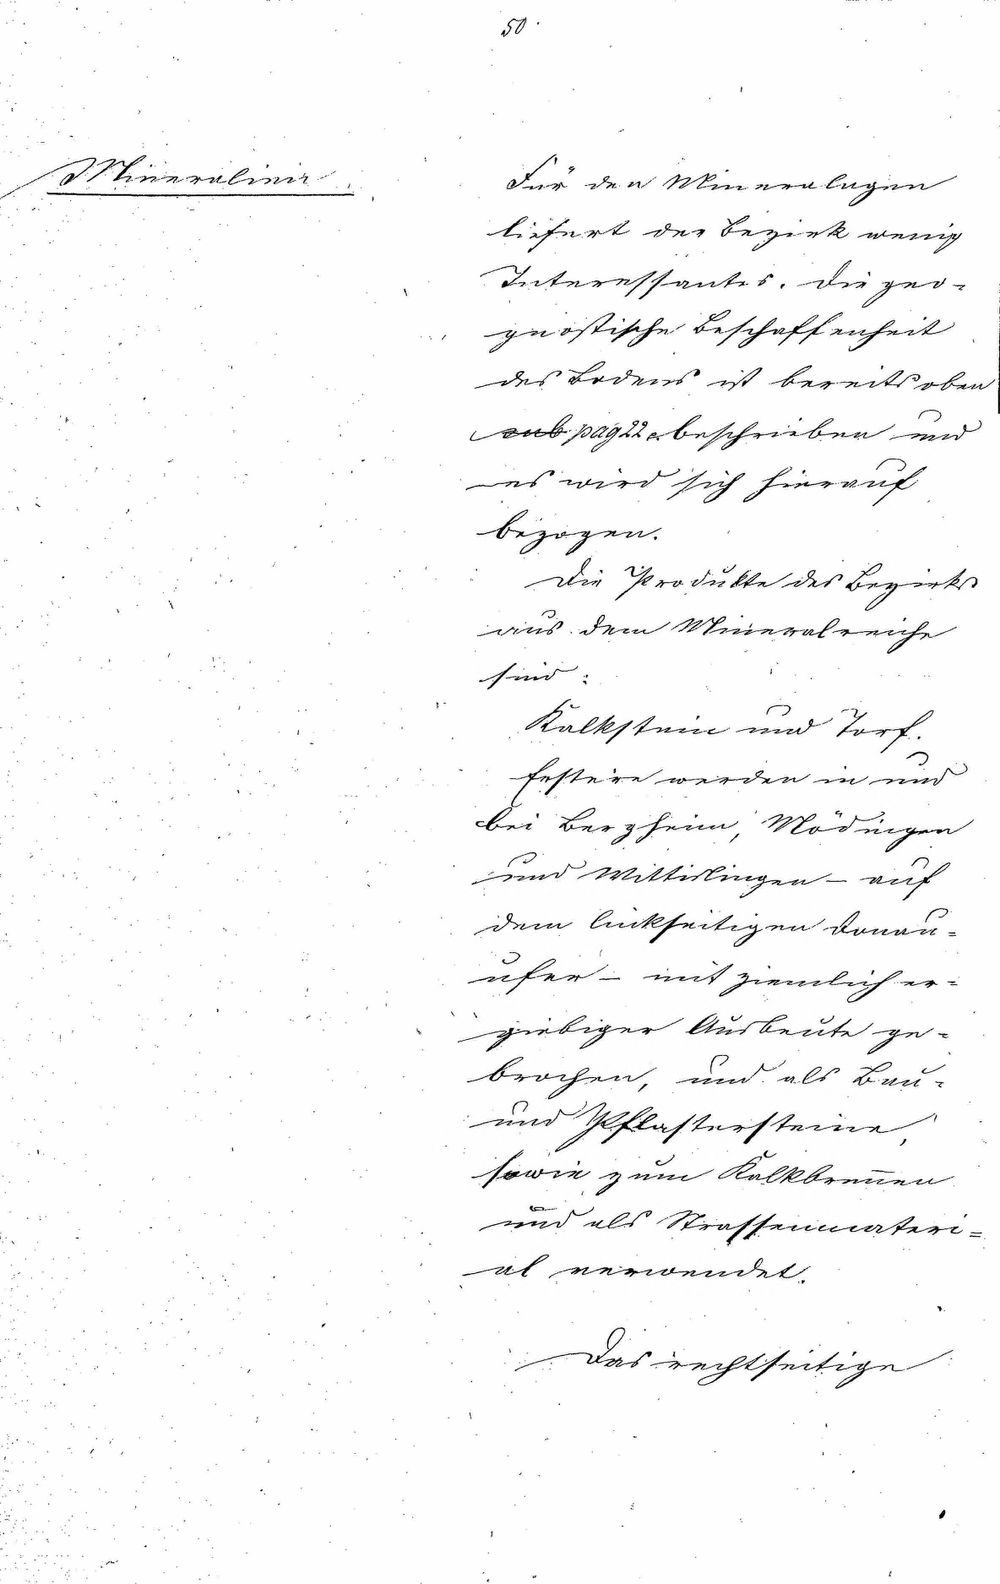 50
Mineralien
Für den Mineralogen
liefert der Bezirk wenig
Interessantes. Die geo-
gnostische Beschaffenheit
des Bodens ist bereits oben
sub pag 22 beschrieben und
es wird sich hierauf
bezogen.
Die Produkte des Bezirks
aus dem Mineralreiche
sind:
Kalkstein und Torf.
Erstere werden in und
bei Bergheim, Mödingen
und Wittislingen – auf
dem linkseitigen Donau-
ufer – mit ziemlich er-
giebiger Ausbeute ge-
brochen, und als Bau-
und Pflastersteine,
sowie zum Kalkbrennen
und als Strassenmateri-
al verwendet.
Das rechtseitige